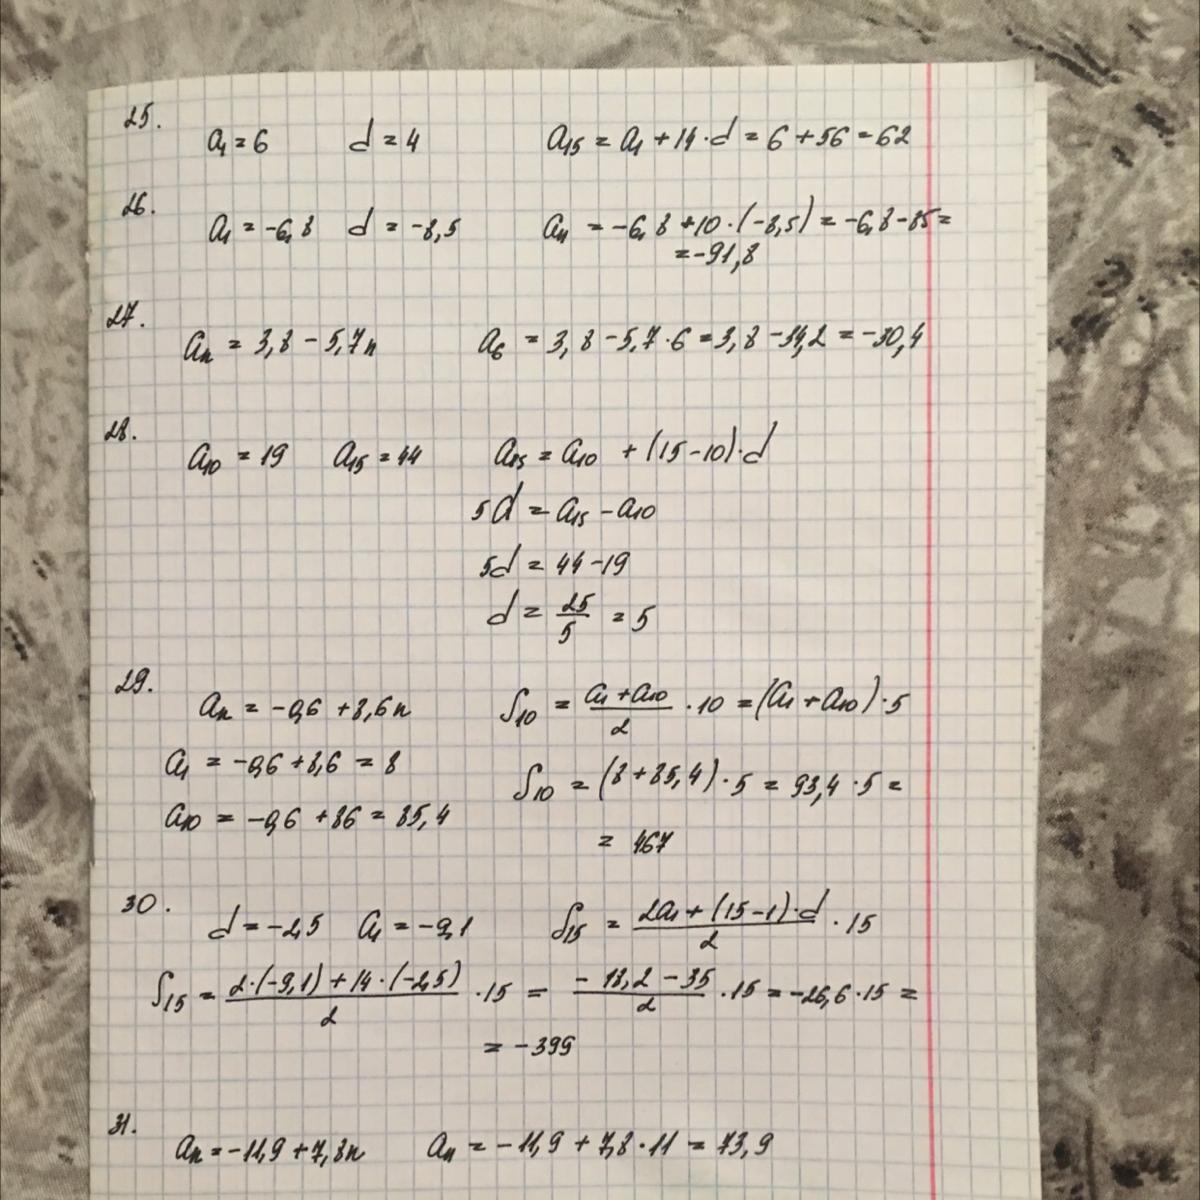 25.
a₁ = 6   d = 4   a₁₅ = a₁ + 14·d = 6 + 56 = 62
26.
a₁ = -6,8   d = -8,5   a₁₁ = -6,8 + 10·(-8,5) = -6,8 - 85 =
= -91,8
27.
aₙ = 3,8 - 5,7n   a₆ = 3,8 - 5,7·6 = 3,8 - 34,2 = -30,4
28.
a₁₀ = 19   a₁₅ = 44   a₁₅ = a₁₀ + (15-10)·d
5d = a₁₅ - a₁₀
5d = 44 - 19
d = 25/5 = 5
29.
aₙ = -0,6 + 8,6n   S₁₀ = (a₁ + a₁₀)/2 · 10 = (a₁ + a₁₀)·5
a₁ = -0,6 + 8,6 = 8
S₁₀ = (8 + 85,4)·5 = 93,4·5 =
a₁₀ = -0,6 + 86 = 85,4
= 467
30.
d = -2,5   a₁ = -9,1   S₁₅ = (2a₁ + (15-1)·d)/2 · 15
S₁₅ = (2·(-9,1) + 14·(-2,5))/2 · 15 = (-18,2 - 35)/2 · 15 = -26,6·15 =
= -399
31.
aₙ = -11,9 + 7,8n   a₁₁ = -11,9 + 7,8·11 = 73,9